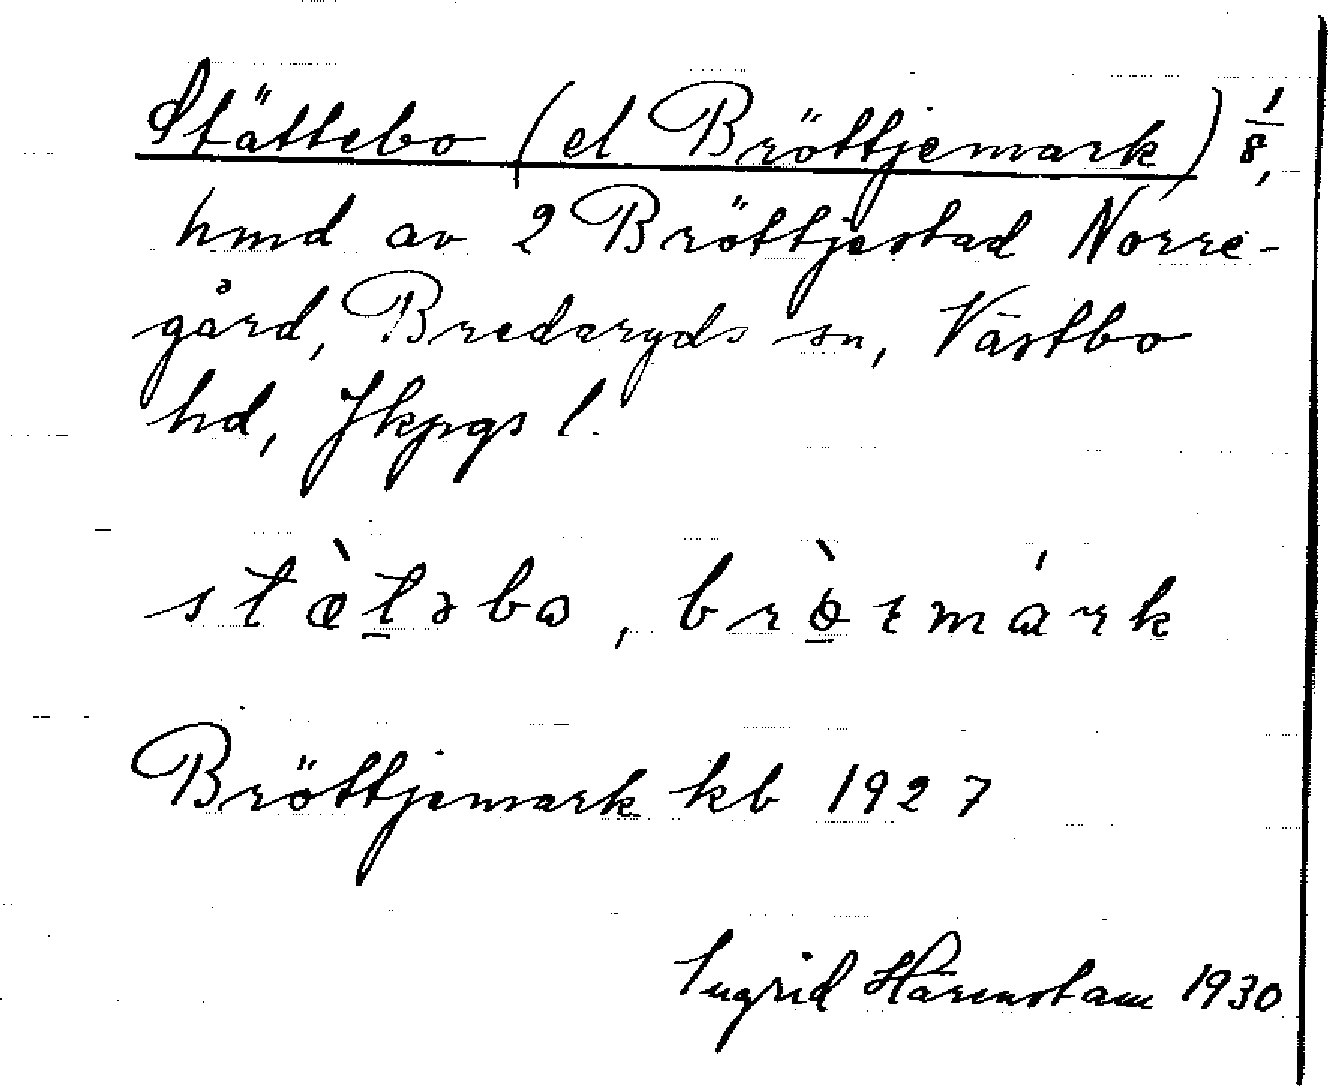 Stättebo (el Bröttjemark) 1/8,
hmd av 2 Bröttjestad Norre-
gård, Bredaryds sn, Västbo
hd, Jkpgs l.
stæ̀t̲əbɷ, brø̲̀tmárk
Bröttjemark kb 1927
Ingrid Härenstam 1930